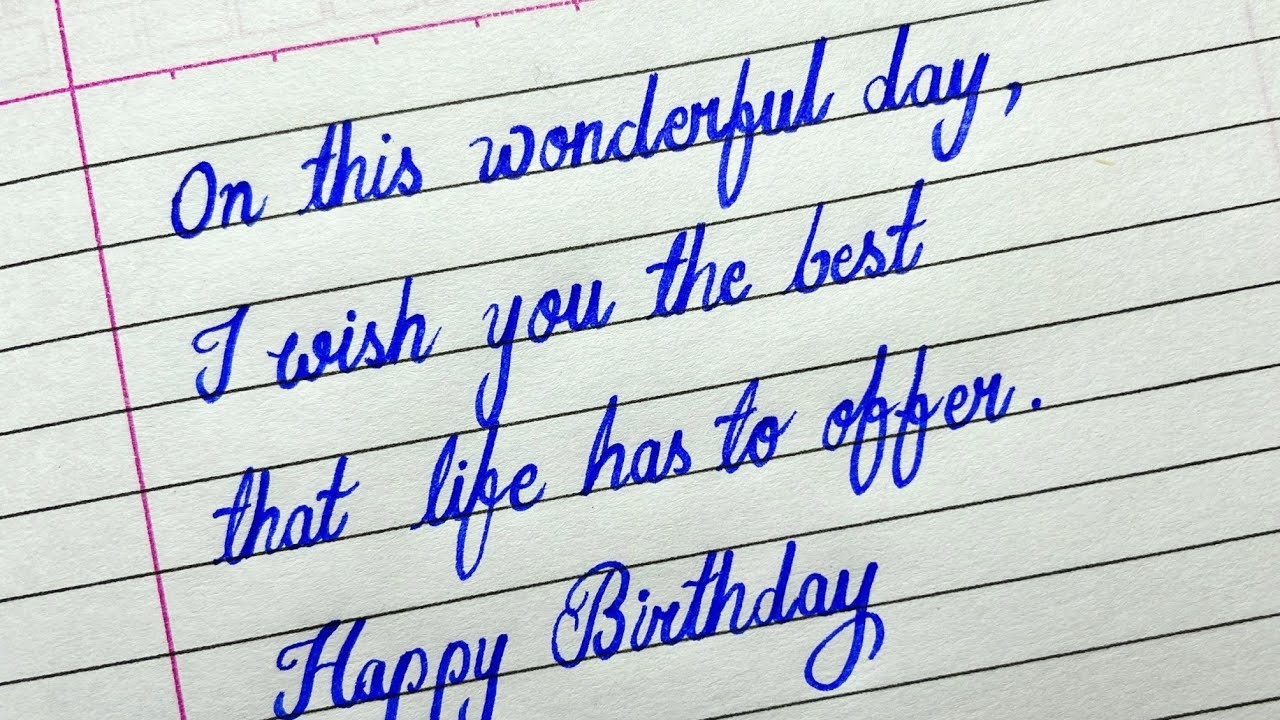 On this wonderful day,
I wish you the best
that life has to offer.
Happy Birthday